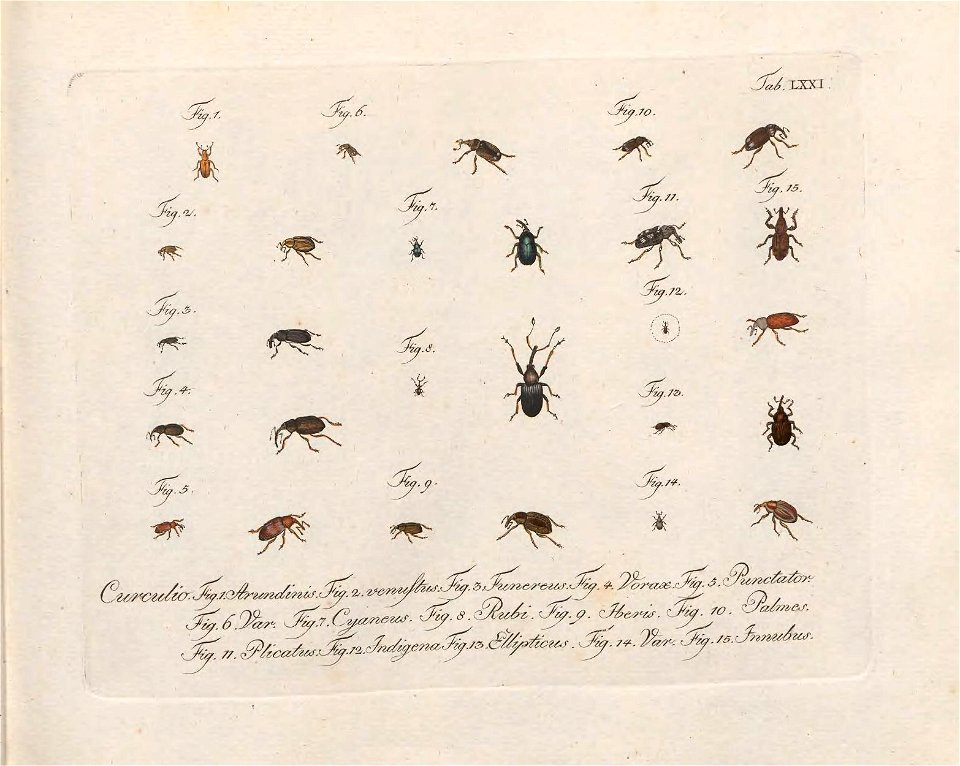 Tab. LXXI.
Fig. 1. Fig. 6. Fig. 10.
Fig. 2. Fig. 7. Fig. 11. Fig. 15.
Fig. 3. Fig. 8. Fig. 12.
Fig. 4. Fig. 13.
Fig. 5. Fig. 9. Fig. 14.
Curculio. Fig. 1. Arundinis. Fig. 2. venuſtus. Fig. 3. Funereus. Fig. 4. Vorax. Fig. 5. Punctator.
Fig. 6. Var. Fig. 7. Cyaneus. Fig. 8. Rubi. Fig. 9. Iberis. Fig. 10. Palmes.
Fig. 11. Plicatus. Fig. 12. Indigena Fig. 13. Ellipticus. Fig. 14. Var. Fig. 15. Innubus.